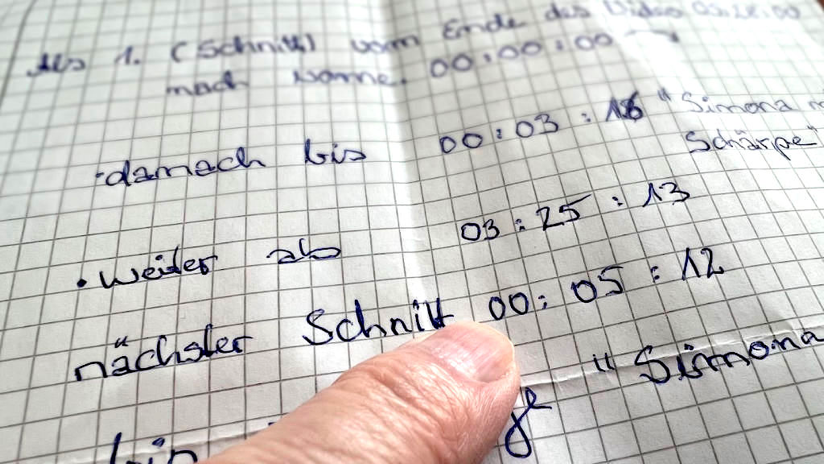 Als 1. (Schnitt) vom Ende des Video
nach vorne. 00:00:00
- danach bis 00:03:18 "Simona
Schärpe"
• weiter ab 03:25:13
nächster Schnitt 00:05:12
"Simona